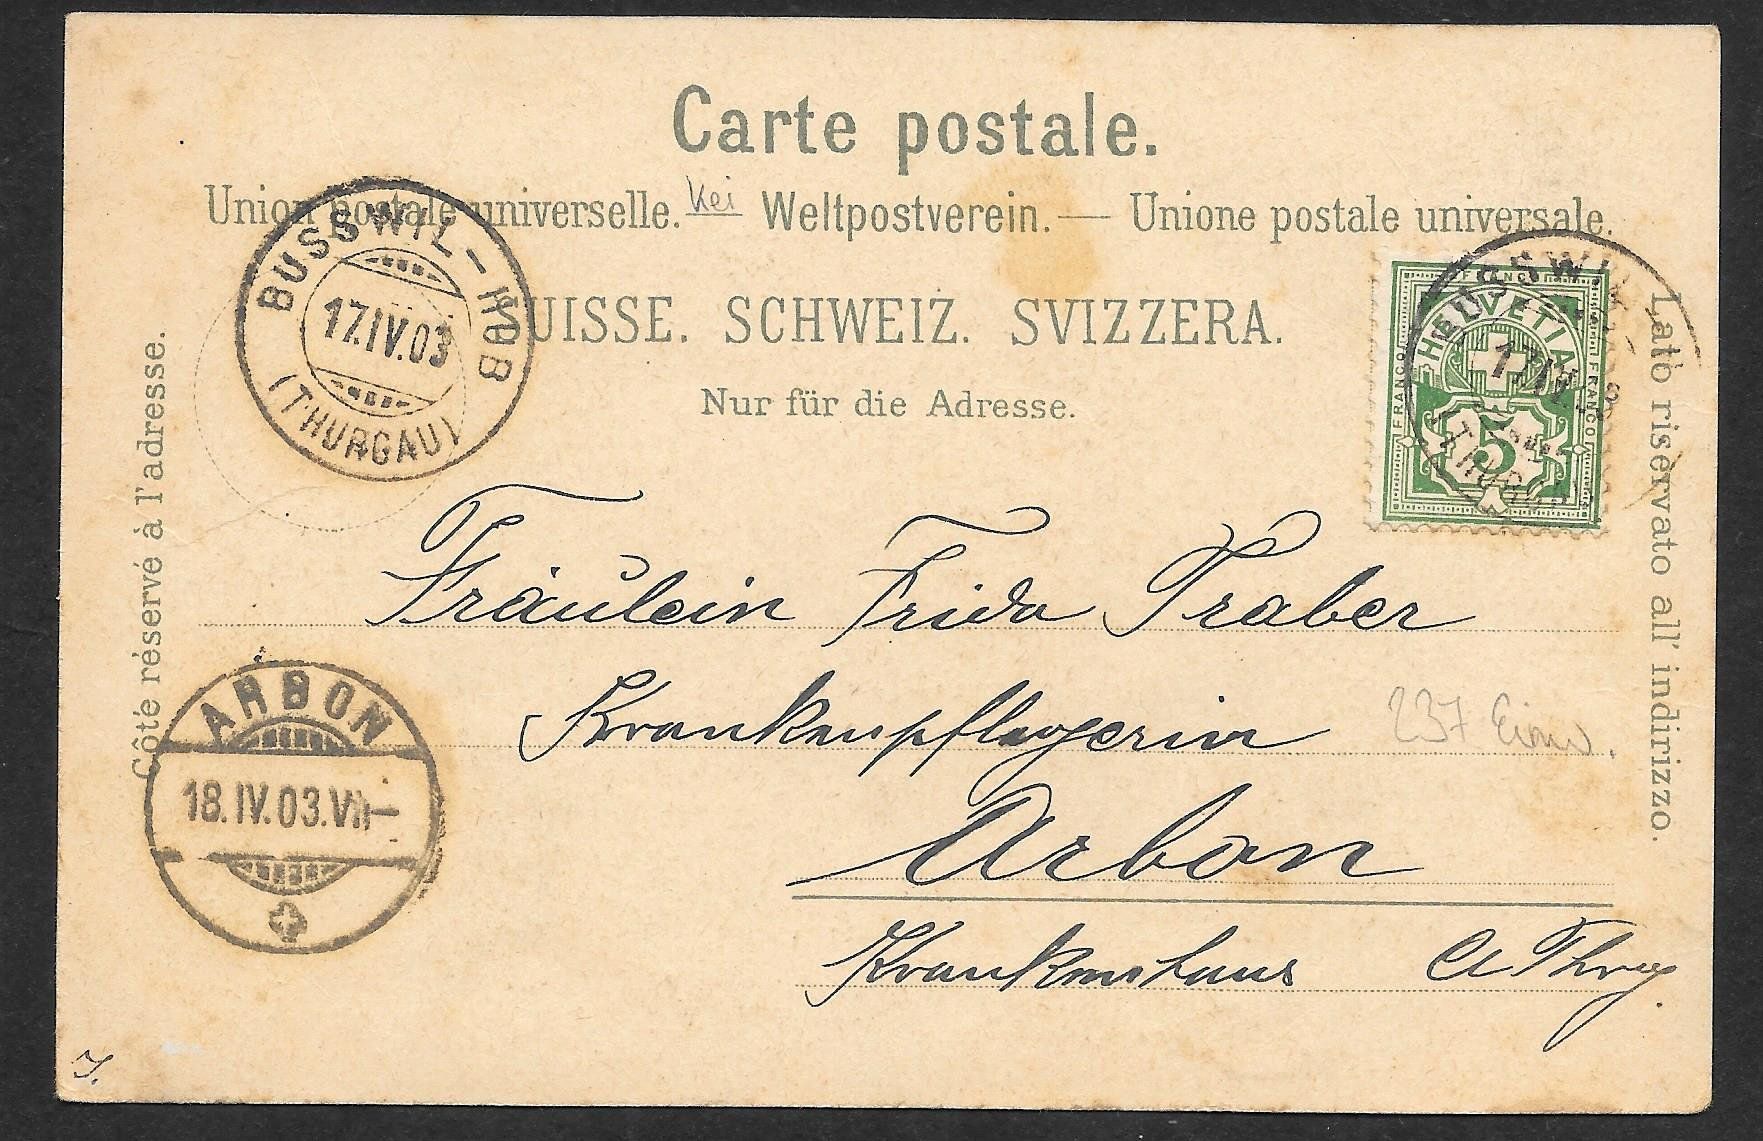 Carte postale.
Union postale universelle. — Weltpostverein. — Unione postale universale.
Kei
SUISSE. SCHWEIZ. SVIZZERA.
Nur für die Adresse.
Côté réservé à l'adresse.
Lato riservato all' indirizzo.
BUSSWIL-HUB
17.IV.03
(THURGAU)
FRANCO
HELVETIA
FRANCO FRANCO
5
BUSSWIL
17.IV.03
(THURGAU)
Fräulein Frida Traber
Krankenpflegerin
237 Einw.
Arbon
Krankenhaus Ct Thrg.
ARBON
18.IV.03.VII-